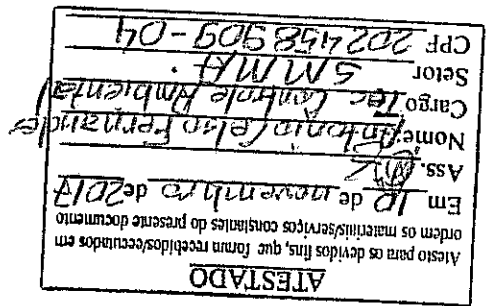 ATESTADO
Atesto para os devidos fins, que foram recebidos/executados em
ordem os materiais/serviços constantes do presente documento
Em 10 de novembro de 2017
Ass.
Nome: Antonio Celso Fernandes
Cargo Tec Controle Ambiental
Setor SMMA.
CPF 202458909-04